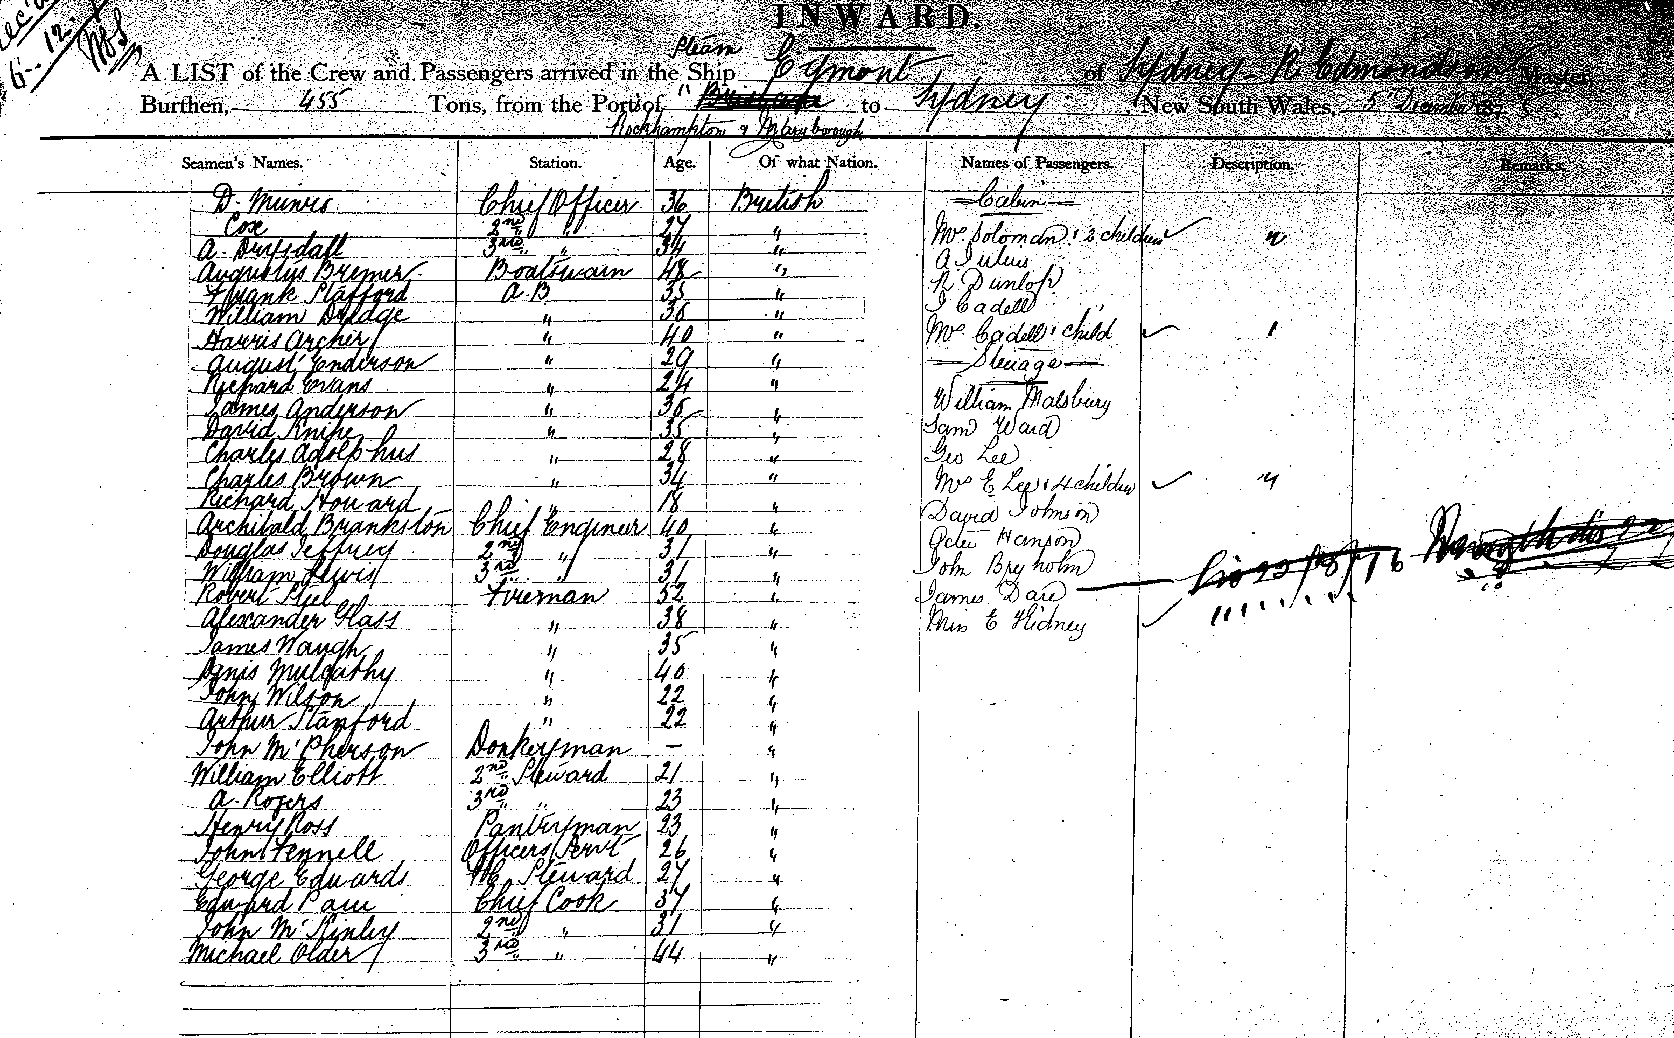 INWARD.
Steam
A LIST of the Crew and Passengers arrived in the Ship Egmont of Sydney R. Edmondson Master
Burthen, 455 Tons, from the Port of " Brisbane to Sydney New South Wales, 5 December 187
Rockhampton & Maryborough
Seamen's Names. Station. Age. Of what Nation. Names of Passengers. Description. Remarks.
D. Munro Chief Officer 36 British Cabin
Cox 2nd " 27 "
A. Drysdall 3rd " 34 " Mrs Soloman & 2 children "
Augustus Bremer Boatswain 48 " A Julius
Frank Stafford A.B 35 " R Dunlop
William Dredge " 36 " J Cadell
Harris Archer " 40 " Mrs Cadell & child "
August Enderson " 29 " Steerage
Richard Evans " 24 "
James Anderson " 36 " William Malsbury
David Knipe " 35 " Sam Ward
Charles Adolphus " 28 " Geo Lee
Charles Brown " 34 " Mrs E Lee & 4 children "
Richard Howard " 18 "
Archibald Brankston Chief Engineer 40 " David Johnson
Douglas Jeffrey 2nd " 31 " Hanson
William Lewis 3rd " 31 " John Bryholm
Robert Steel Fireman 32 " James Dare
Alexander Glass " 38 " Miss E Kidney
James Waugh " 35 "
Denis Mulcathy " 40 "
John Wilson " 22 "
Arthur Stanford " 22 "
John McPherson Donkeyman - "
William Elliott 2nd Steward 21 "
A. Rogers 3rd " 23 "
Henry Ross Pantryman 23 "
John Fennell Officers Servt 26 "
George Edwards Steward 27 "
Edward Paul Chief Cook 37 "
John McKinley 2nd " 31 "
Michael Older 3rd " 44 "